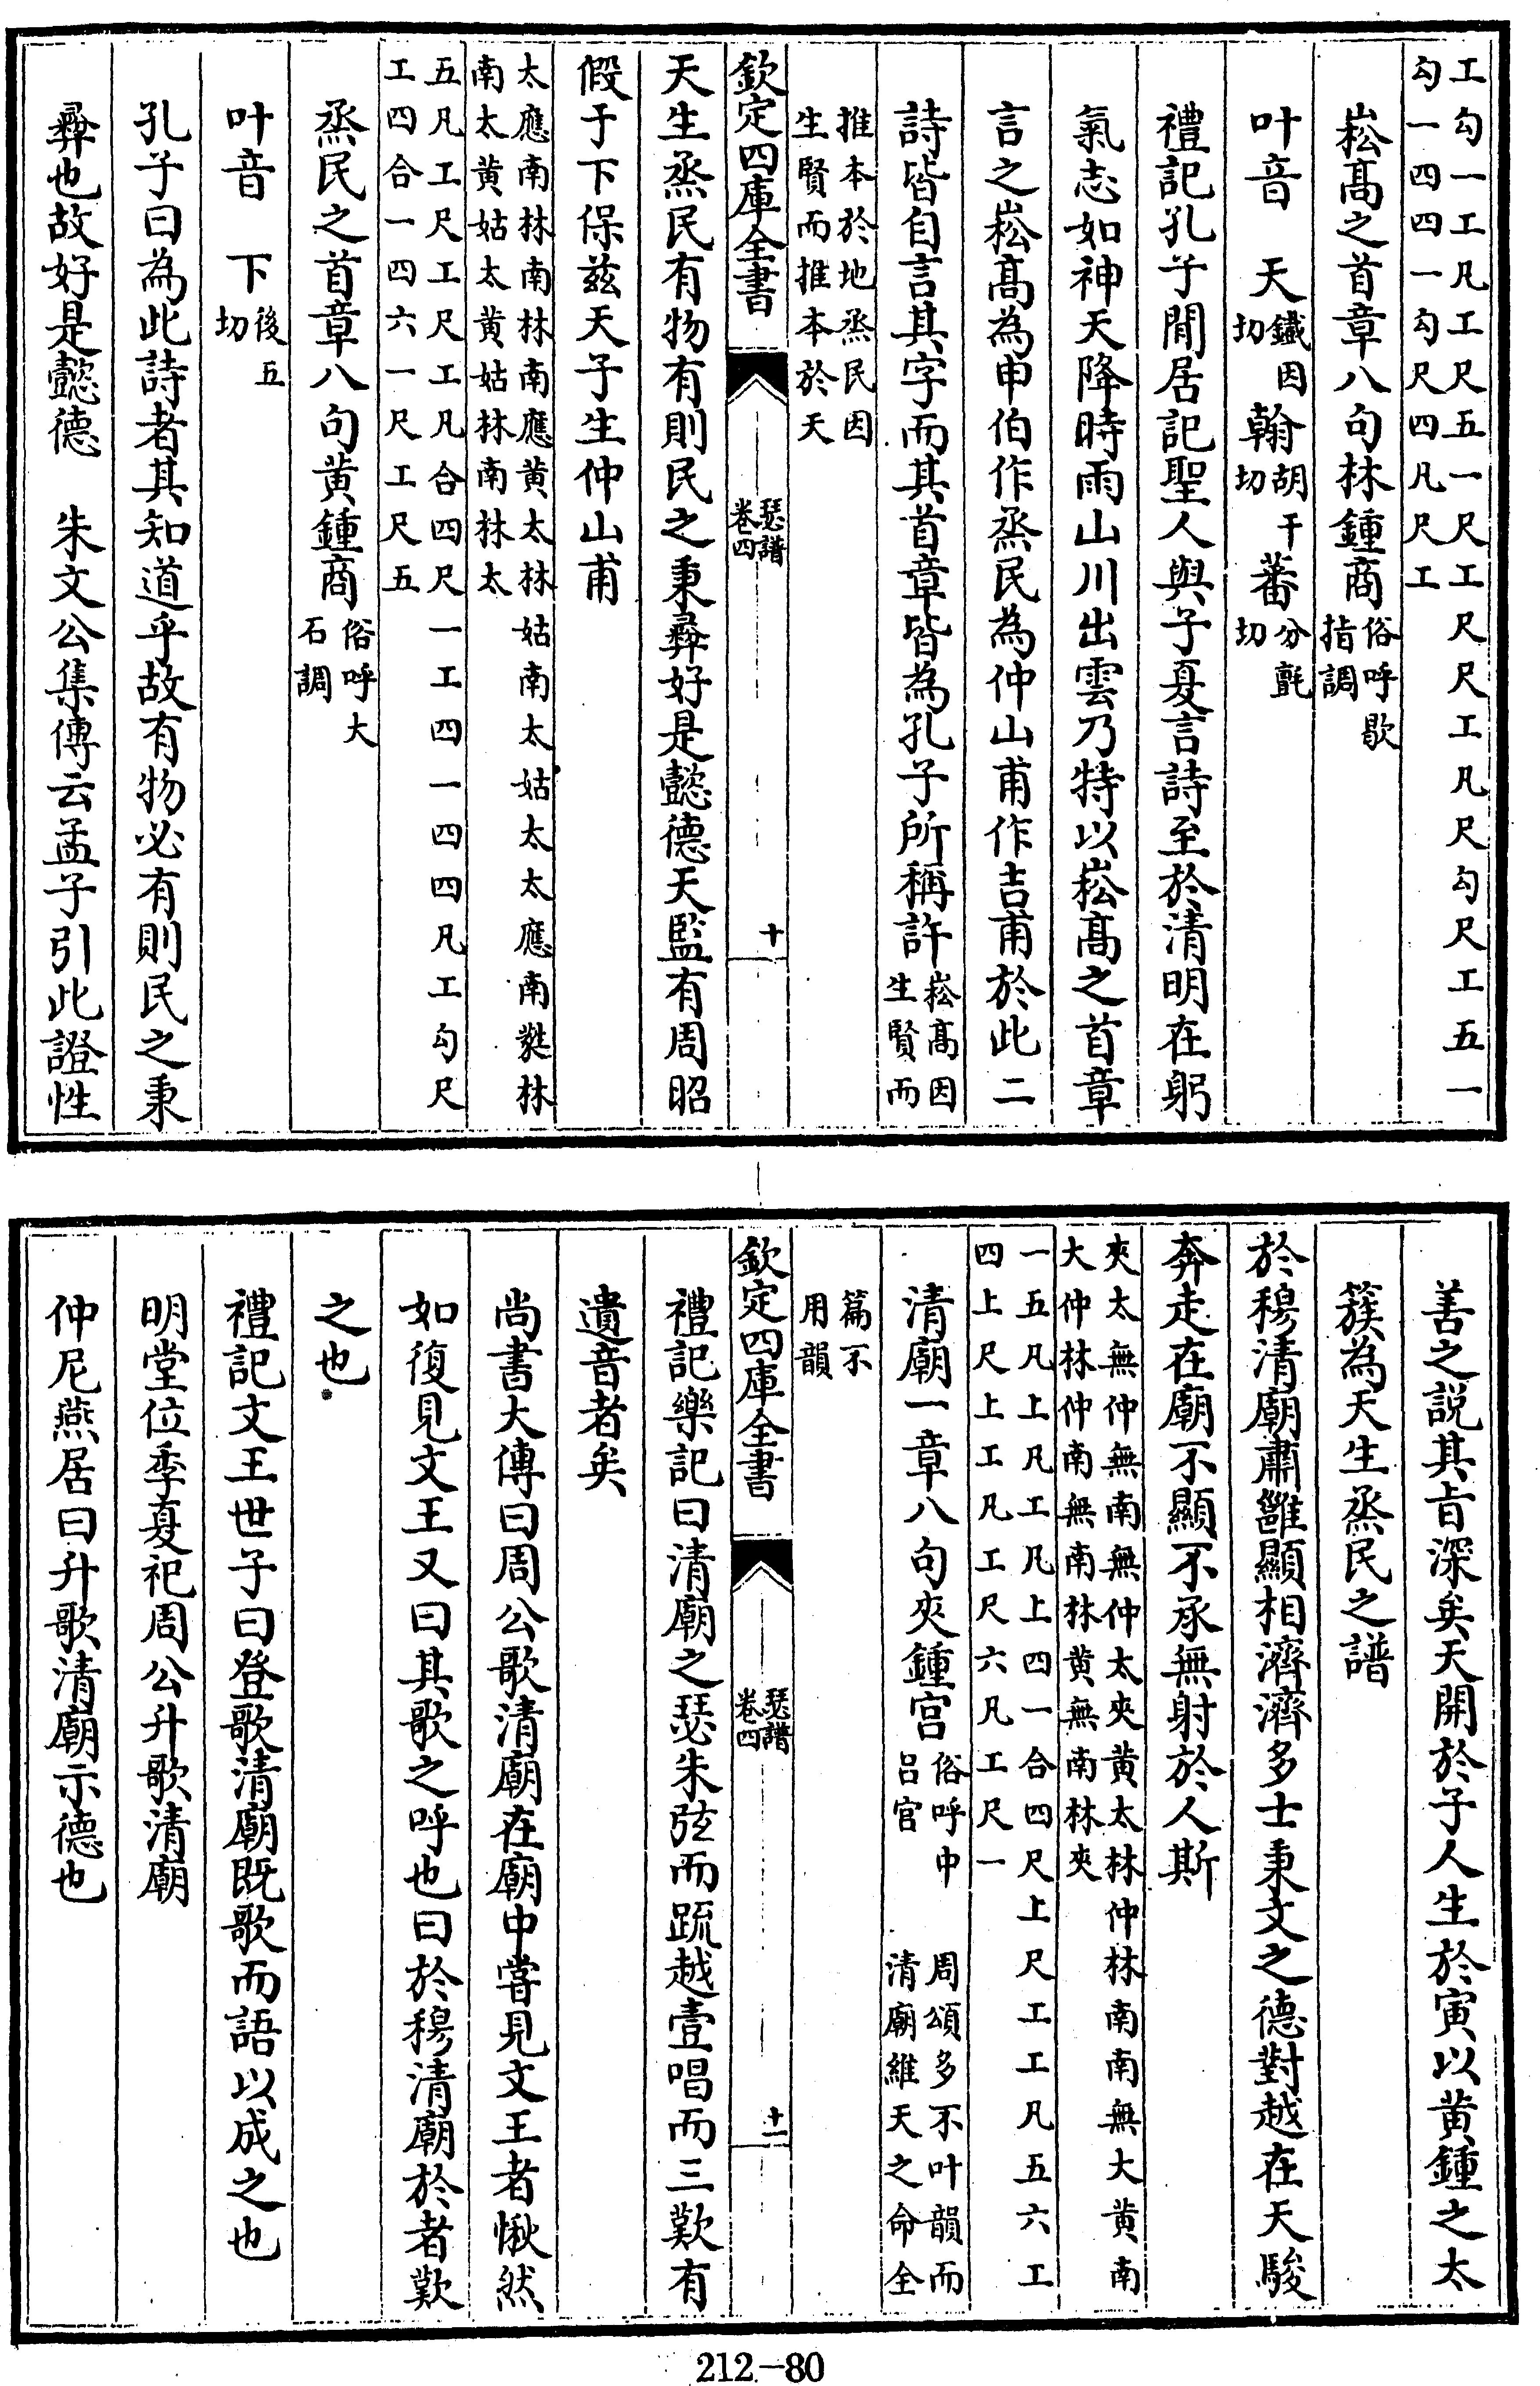 工勾一工凡工尺五一尺工尺尺工凡尺勾尺工五一
勾一四四一勾尺四凡尺工
崧髙之首章八句林鍾商俗呼歇指調
叶音　天鐵因切翰胡干切蕃分氈切
禮記孔子閒居記聖人與子夏言詩至於清明在躬
氣志如神天降時雨山川出雲乃特以崧髙之首章
言之崧髙為申伯作烝民為仲山甫作吉甫於此二
詩皆自言其字而其首章皆為孔子所稱許崧髙因生賢而
推本於地烝民因生賢而推本於天
欽定四庫全書　瑟譜卷四　十
天生烝民有物有則民之秉彞好是懿德天監有周昭
假于下保兹天子生仲山甫
太應南林南林南應黄太林姑南太姑太太應南㽔林
南太黄姑太黄姑林南林太
五凡工尺工尺工凡合四尺一工四一四四凡工勾尺
工四合一四六一尺工尺五
烝民之首章八句黄鍾商俗呼大石調
叶音　下後五切
孔子曰為此詩者其知道乎故有物必有則民之秉
彞也故好是懿德　朱文公集傳云孟子引此證性
善之説其旨深矣天開於子人生於寅以黄鍾之太
簇為天生烝民之譜
於穆清廟肅雝顯相濟濟多士秉文之德對越在天駿
奔走在廟不顯不承無射於人斯
夾太無仲無南無仲太夾黄太林仲林南南無大黄南
大仲林仲南無南林黄無南林夾
一五凡上凡工凡上四一合四尺上尺工工凡五六工
四上尺上工凡工尺六凡工尺一
清廟一章八句夾鍾宫俗呼中吕宫　周頌多不叶韻而清廟維天之命全
篇不用韻
欽定四庫全書　瑟譜卷四　十一
禮記樂記曰清廟之瑟朱弦而疏越壹唱而三歎有
遺音者矣
尚書大傳曰周公歌清廟在廟中嘗見文王者愀然
如復見文王又曰其歌之呼也曰於穆清廟於者歎
之也
禮記文王世子曰登歌清廟既歌而語以成之也
明堂位季夏祀周公升歌清廟
仲尼燕居曰升歌清廟示德也
212-80